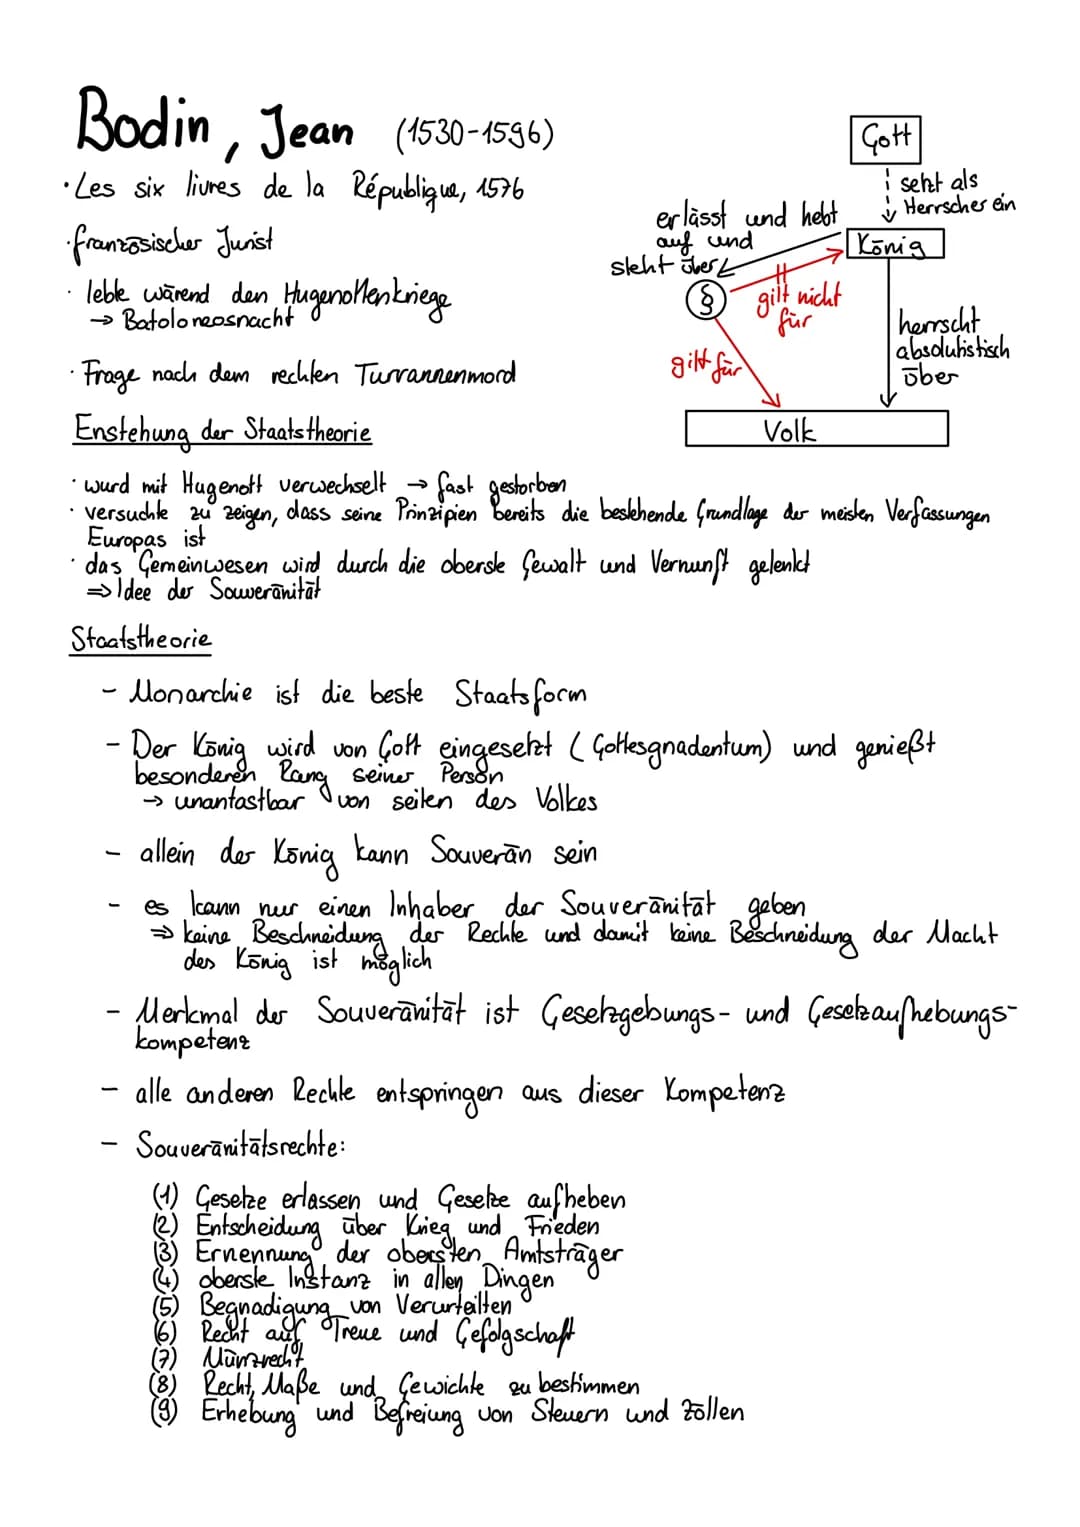 Bodin, Jean (1530-1596)
·Les six livres de la République, 1576
·französischer Jurist
· lebte wärend den Hugenottenkriege
→ Batoloneosnacht
· Frage nach dem rechten Turrannenmord
Gott
setzt als
Herrscher ein
erlässt und hebt
auf und
steht über
König
§
gilt nicht
für
gilt für
herrscht
absolutistisch
über
Volk
Enstehung der Staatstheorie
· wurd mit Hugenott verwechselt → fast gestorben
· versuchte zu zeigen, dass seine Prinzipien bereits die bestehende Grundlage der meisten Verfassungen
Europas ist
· das Gemeinwesen wird durch die oberste Gewalt und Vernunft gelenkt
⇒ Idee der Souveränität
Staatstheorie
- Monarchie ist die beste Staatsform
- Der König wird von Gott eingesetzt (Gottesgnadentum) und genießt
besonderen Rang seiner Person
→ unantastbar von seiten des Volkes
- allein der König kann Souverän sein
- es kann nur einen Inhaber der Souveränität geben
⇒ keine Beschneidung der Rechte und damit keine Beschneidung der Macht
des König ist möglich
- Merkmal der Souveränität ist Gesetzgebungs- und Gesetzaufhebungs-
kompetenz
- alle anderen Rechte entspringen aus dieser Kompetenz
- Souveränitätsrechte:
(1) Gesetze erlassen und Gesetze aufheben
(2) Entscheidung über Krieg und Frieden
(3) Ernennung der obersten Amtsträger
(4) oberste Instanz in allen Dingen
(5) Begnadigung von Verurteilten
(6) Recht auf Treue und Gefolgschaft
(7) Münzrecht
(8) Recht, Maße und Gewichte zu bestimmen
(9) Erhebung und Befreiung von Steuern und Zöllen